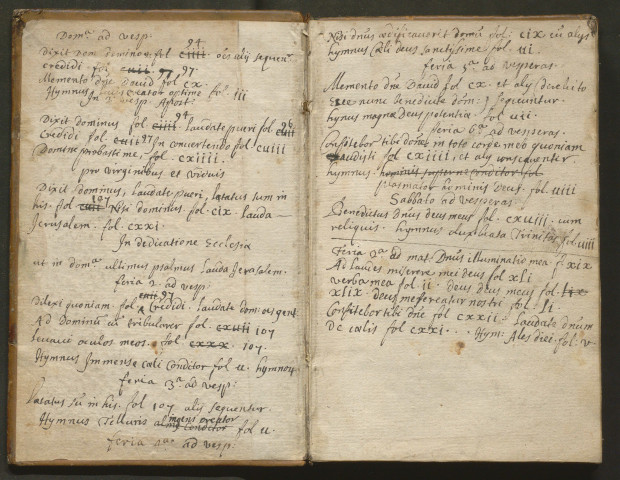 Domca ad vesp.
Dixit Dom domino fol ciiii 94 ... alij sequen.
credidi . fol . cuii 97 97.
Momento dne David fol cx.
Hymnus Lucis Creator optime fol. iii
In 2 vesp. Apost:
Dixit dominus fol ciiii 94 laudate pueri fol. cuii 96
Credidi fol. cuii 97 In convertendo fol. cuiii
Domine probasti me, fol. cxiiii.
pro virginibus et viduis
Dixit Dominus, laudate pueri, lætatus sum in
his. fol cuii 107 Nisi dominus fol. cix. lauda
Jerusalem. fol. cxxi.
In dedicatione Ecclesia
ut in domca ultimus psalmus lauda Jerusalem.
feria 2a ad vesp.
Dilexi quoniam fol. cuii 97 Credidi. laudate dom. oes gent
Ad Dominum cu tribularer fol. cxuii 107
levavi oculos meos. fol. cxxx. 107.
Hymnus Immense cæli Conditor fol u. hymnor
feria 3a ad vesp:
lætatus su in his. fol 107 alij sequentur.
Hymnus Telluris alme conditor ingens creator fol u.
feria 4ae ad vesp:
Nisi dnus ædificaverit domu fol. cix cu alijs
hymnus Cæli deus sanctissime fol. ui.
feria 5a ad vesperas.
Memento dne David fol cx. et alij
Ecce nunc benedicite dom. sequuntur.
hynus magnæ deus potentiæ fol. uii.
feria 6a ad vesperas.
Confitebor tibi dne in toto corde meo quoniam
audisti fol cxiiii, et alij
hymnus. hominis supernæ Conditor fol
Plasmator hominis Deus. fol uiii
Sabbato ad vesperas
Benedictus Dnus deus meus fol. cxuiii. cum
reliquis. hymnus O lux beata Trinitas fol uiiii
Feria 2a ad mat. Dnus illuminatio mea f. xix
Ad laudes miserere mei Deus fol xli
verba mea fol. ii. Deus Deus meus fol. lix
xlix. deus misereatur nostri fol. li.
Confitebor tibi dne fol cxxii. Laudate dnum
De cælis fol cxxi. . Hym: Ales diei fol. v